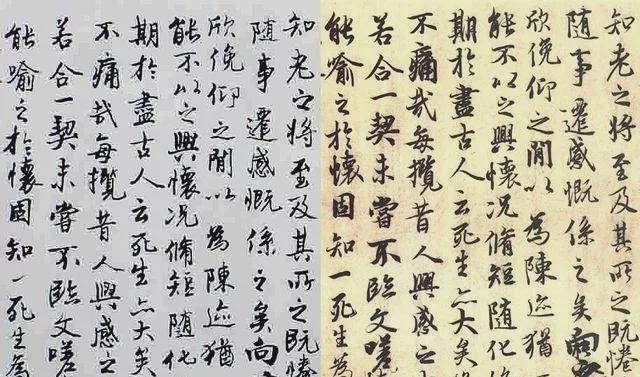 知老之将至及其所之既惓
随事遷感慨係之矣向
欣俛仰之閒以為陳迹猶
能不以之興懷况脩短随化
期於盡古人云死生亦大矣
不痛哉每攬昔人興感之
若合一契未嘗不臨文嗟
能喻之於懷固知一死生為
知老之将至及其所之既惓
随事遷感慨係之矣向
欣俛仰之閒以為陳迹猶
能不以之興懷况脩短随化
期於盡古人云死生亦大矣
不痛哉每攬昔人興感之
若合一契未嘗不臨文嗟
能喻之於懷固知一死生為